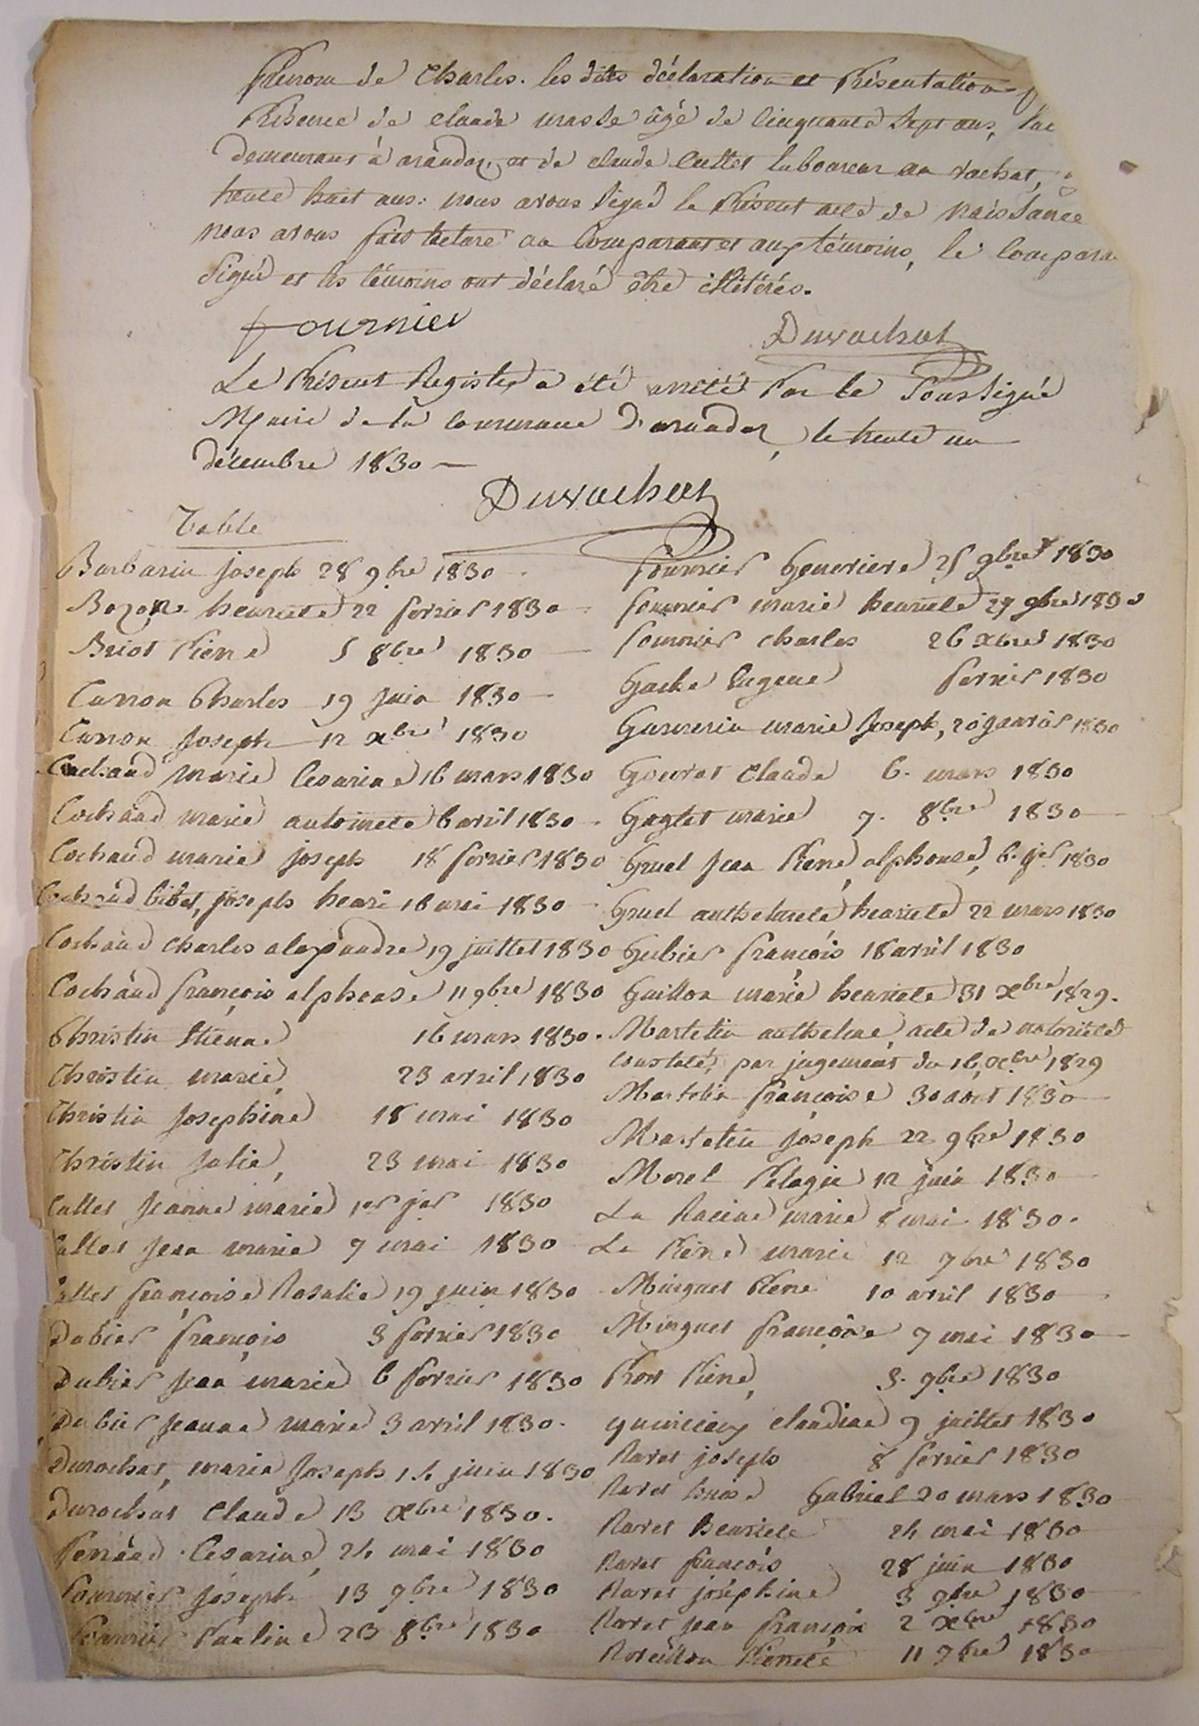 Prénom de Charles. les dites déclaration et Présentation
Présence de claude masse âgé de Cinquante Sept ans,
demeurant à arandas, et de claude Cullet laboureur au
trente huit ans: nous avons signé le Présent acte de Naissance
nous avons fait lecture au Comparant et aux témoins, le Compara
Signé et les témoins ont déclaré être illétérés.
fournier Duvachat
Le Présent Registre a été arreté Par le Soussigné
Maire de la Commune d'arandas, le trente un
décembre 1830
Duvachat
Table
Barbarin joseph 28 9bre 1830
henriete 22 fevrier 1830
Briot Pierre 5 8bre 1830
Carron Charles 19 juin 1830
Carron Joseph 12 xbre 1830
Cochaud Marie Cesarine 16 mars 1830
Cochaud marie antoinete 6 avril 1830
Cochaud marie joseph 18 fevrier 1830
Cochaud bibet, joseph henri 16 mai 1830
Cochaud charles alexandre 19 juillet 1830
Cochaud françois alphonse 11 9bre 1830
Christin Etienne 16 mars 1830.
Christin marie 23 avril 1830
Christin Josephine 18 mai 1830
Christin Julie, 23 mai 1830
Cullet Jeanne marie 1er jer 1830
Cullet jean marie 7 mai 1830
Cullet françoise Rosalie 19 juin 1830
Dubier françois 3 fevrier 1830
Dubier jean marie 6 fevrier 1830
Dubier jeanne marie 3 avril 1830.
Duvachat, maria Joseph 14 juin 1830
Duvachat Claude 13 xbre 1830.
Cesarine 24 mai 1830
Fournier joseph 13 7bre 1830
Fournier Pauline 23 8bre 1830
fournier Genevieve 25 9bre 1830
fournier marie henriete 29 9bre 1830
fournier charles 26 xbre 1830
Gache Eugene fevrier 1830
marie Joseph, 20 janvier 1830
Claude 6. mars 1830
marie 7. 8bre 1830
Gruel Jean Pierre, alphonse, 6. jer 1830
Gruel anthelmete henriete 22 mars 1830
Gubier françois 18 avril 1830
Guillon marie henriete 31 xbre 1829.
Martelin anthelme, acte de notoriété
constaté, par jugement du 16 xbre 1829
Martelin françoise 30 aout 1830
Martelin Joseph 22 9bre 1830
Morel Pelagie 12 juin 1830
La Racine marie 8 mai 1830.
La Piere marie 12 7bre 1830
Minguet Pierre 10 avril 1830
Minguet françoise 7 mai 1830
Pierre, 3. 9bre 1830
claudine 9 juillet 1830
Ravet joseph 8 fevrier 1830
Ravet Gabriel 20 mars 1830
Ravet henriete 24 mai 1830
Ravet françois 28 juin 1830
Ravet joséphine 3 7bre 1830
Ravet jean françois 2 xbre 1830
11 7bre 1830